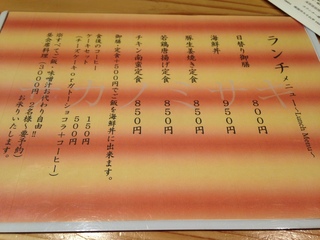 ランチメニュー〜Lunch Menu〜
日替り御膳 800円
海鮮丼 950円
豚生姜焼き定食 850円
若鶏唐揚げ定食 850円
チキン南蛮定食 850円
御膳・定食+500円でご飯を海鮮丼に出来ます。
食後のコーヒー 150円
ケーキセット 500円
(チーズケーキorガトーショコラ+コーヒー)
※すべてご飯・味噌汁お代わり自由!!
昼会席料理(3000円、2名様〜要予約)
お承りいたします。